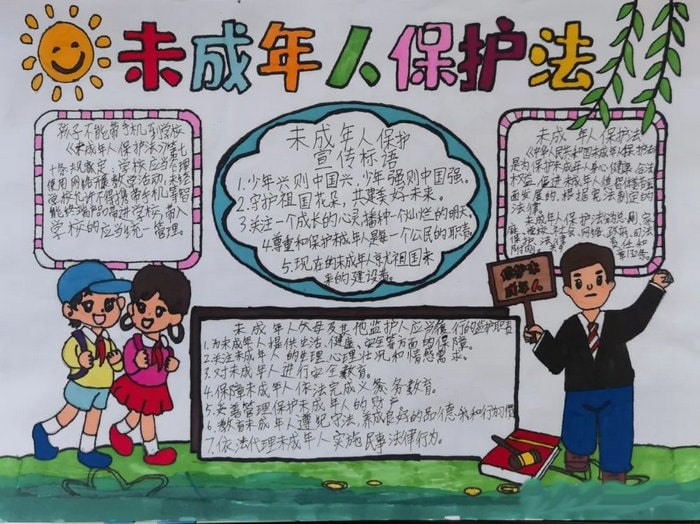 未成年人保护法
孩子不能带手机到学校
《未成年人保护法》第七
十条规定,学校应当合理
使用网络开展教学活动,未经
学校允许不得携带手机等智
能终端产品带进学校,带入
学校的应当统一管理。
未成年人保护
宣传标语
1.少年兴则中国兴,少年强则中国强。
2.守护祖国花朵,共建美好未来。
3.关注一个成长的心灵,播种一个灿烂的明天
4.尊重和保护未成年人是每一个公民的职责
5.现在的未成年人就祖国未
来的建设者。
未成年人保护法
《中华人民共和国未成年人保护法》
是为保护未成年人身心健康,合法
权益,促进未成年人德智体美
面发展的,根据宪法制定的
法律
未成年人保护法
家庭、学校、社会、网络、政府、司法
保护
附则
保护未
成年人
未成年人父母及其他监护人应当履行的监护职责
1.为未成年人提供生活、健康、安全等方面的保障。
2.关注未成年人的生理、心理状况和情感需求。
3.对未成年人进行安全教育。
4.保障未成年人依法完成义务教育。
5.妥善管理保护未成年人的财产
6.教育未成年人遵纪守法,养成良好的品德和行为习惯
7.依法代理未成年人实施民事法律行为。